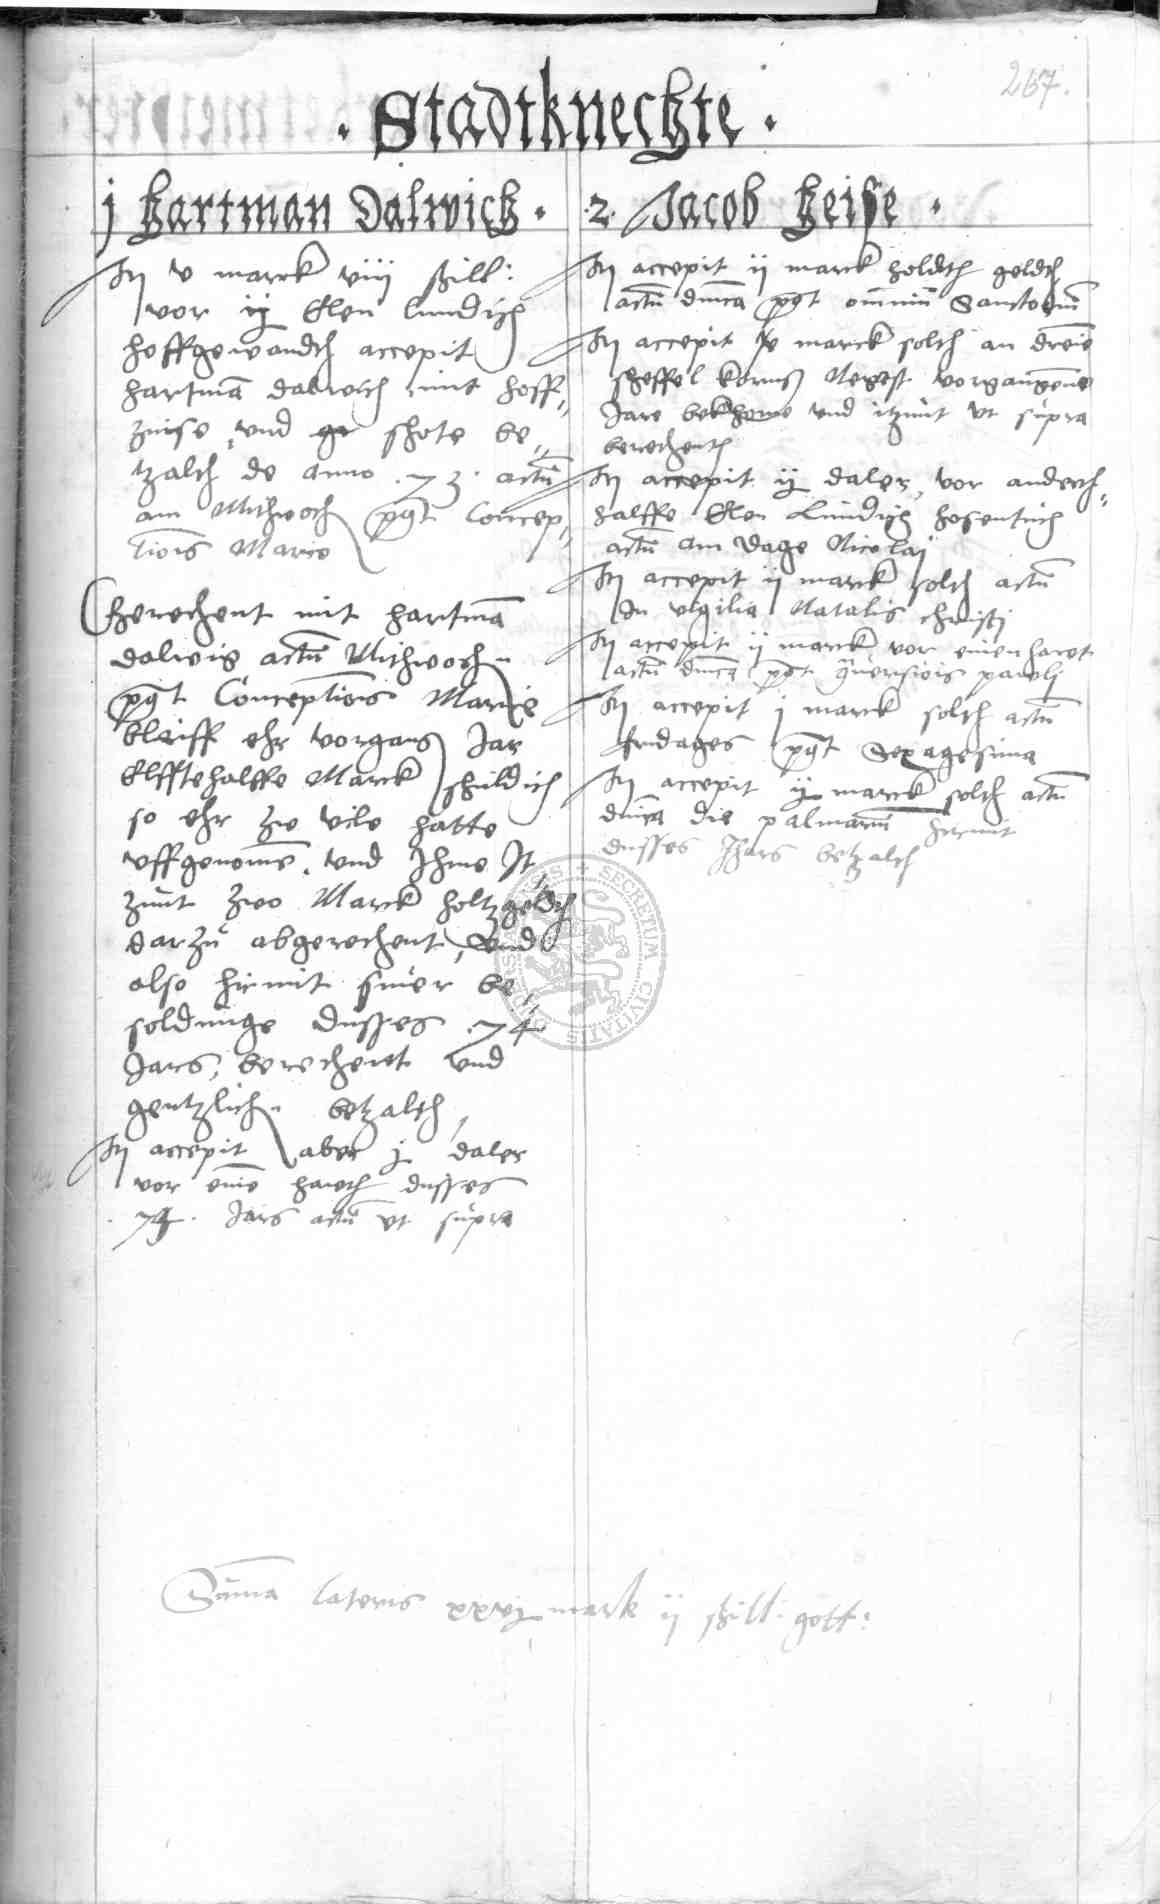 267.
. Stadtknechte .
j Hartman Dalwich .
It v marck viii schill:
vor ij Elen lundisch
hoffgewandth accepit
hartmā dalwich mit hoff„
zinse und schote be„
tzalth de anno .73. actū
am Mithwoch post Concep„
tiois Marie
Berechent mit hartmā
dalwig actū Mithwochn
post Conceptiois Marie
bleiff ehr vorgang Jar
Elfftehalffe Marck schuldich
so ehr zu vile hatte
uffgenomē. und Ihme It„
zunt zwo Marck holtzgeldth
darzu abgerechent, und
also hirmit siner be„
soldunge dusses .74.
Jars, berechent und
gentzlichn betzalth
It accepit aber j daler
vor eine haueth dusses
.74. Jars actū ut supra
.2. Jacob Heise .
It accepit ij marck holdth geldth
actū dnica post omniū Sanctorum
It accepit marck solth an dreie
scheffel korns Negest vorgangene
Jare bekheme und itzunt ut supra
berechenth
It accepit ij daler, vor anderth„
halffe Elen Lundisch hosentuch
actū am dage Nicolaij
It accepit ij marck solth actū
In vigilia Natalis christj
It accepit ij marck vor einen haret
actū dnica post Conuersiois paulj
It accepit j marck solth actū
fridages post Sexagesima
It accepit ij marck solth actū
dnica die palmarū hirmit
dusses Jhars betzalth
Suma lateris xxvj mark ij schill: gott: